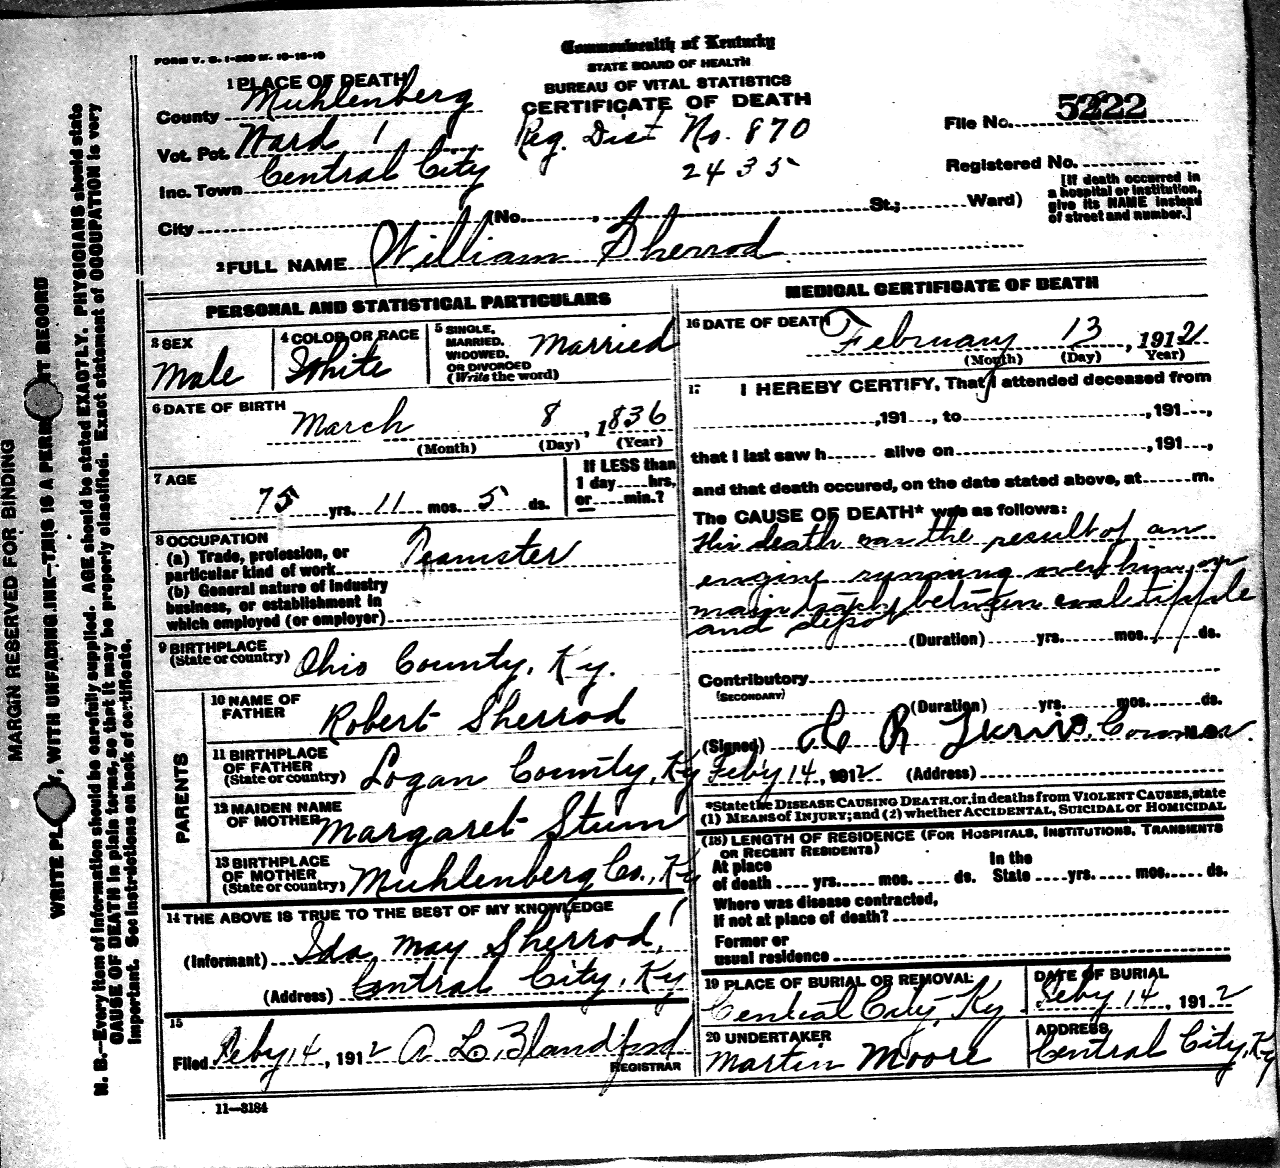 FORM V. S. 1-500 M. 10-16-10
Commonwealth of Kentucky
STATE BOARD OF HEALTH
BUREAU OF VITAL STATISTICS
CERTIFICATE OF DEATH
1 PLACE OF DEATH
County Muhlenberg
Vot. Pct. Ward 1
Inc. Town Central City
City
Reg. Dist No. 870
2435
File No. 5222
Registered No.
[If death occurred in
a hospital or institution,
give its NAME instead
of street and number.]
(No. , St.; Ward)
2 FULL NAME William Sherrod
PERSONAL AND STATISTICAL PARTICULARS
3 SEX
Male
4 COLOR OR RACE
White
5 SINGLE,
MARRIED,
WIDOWED,
OR DIVORCED
(Write the word)
Married
6 DATE OF BIRTH
March 8, 1836
(Month) (Day) (Year)
7 AGE
75 yrs. 11 mos. 5 ds.
If LESS than
1 day hrs.
or min.?
8 OCCUPATION
(a) Trade, profession, or
particular kind of work Teamster
(b) General nature of industry
business, or establishment in
which employed (or employer)
9 BIRTHPLACE
(State or country) Ohio County, Ky.
PARENTS
10 NAME OF
FATHER Robert Sherrod
11 BIRTHPLACE
OF FATHER
(State or country) Logan County, Ky
12 MAIDEN NAME
OF MOTHER Margaret Stum
13 BIRTHPLACE
OF MOTHER
(State or country) Muhlenberg Co., Ky
14 THE ABOVE IS TRUE TO THE BEST OF MY KNOWLEDGE
(Informant) Ida May Sherrod
(Address) Central City, Ky
15
Filed Feby 14, 1912 A L Blandford
REGISTRAR
11—3184
MEDICAL CERTIFICATE OF DEATH
16 DATE OF DEATH
February 13, 1912
(Month) (Day) (Year)
17 I HEREBY CERTIFY, That I attended deceased from
, 191 , to , 191 ,
that I last saw h alive on , 191 ,
and that death occured, on the date stated above, at m.
The CAUSE OF DEATH* was as follows:
His death was the result of an
engine running over him on
main track between coal tipple
and depot
(Duration) yrs. mos. ds.
Contributory
(SECONDARY)
(Duration) yrs. mos. ds.
(Signed) C R Coroner M.D.
Feby 14, 1912 (Address)
*State the DISEASE CAUSING DEATH, or, in deaths from VIOLENT CAUSES, state
(1) MEANS OF INJURY; and (2) whether ACCIDENTAL, SUICIDAL OR HOMICIDAL
(18) LENGTH OF RESIDENCE (FOR HOSPITALS, INSTITUTIONS, TRANSIENTS
OR RECENT RESIDENTS)
At place
of death yrs. mos. ds.
In the
State yrs. mos. ds.
Where was disease contracted,
if not at place of death?
Former or
usual residence
19 PLACE OF BURIAL OR REMOVAL
Central City, Ky
DATE OF BURIAL
Feby 14, 1912
20 UNDERTAKER
Martin Moore
ADDRESS
Central City, Ky
MARGIN RESERVED FOR BINDING
WRITE PL Y, WITH UNFADING INK—THIS IS A PERM T RECORD
N. B.—Every item of information should be carefully supplied. AGE should be stated EXACTLY. PHYSICIANS should state
CAUSE OF DEATH in plain terms, so that it may be properly classified. Exact statement of OCCUPATION is very
important. See instructions on back of certificate.